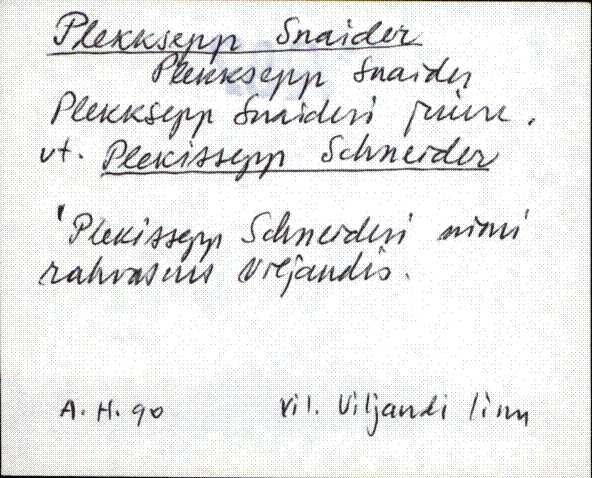 Plekksepp Snaider
Plekksepp Snaider
Plekksepp Snaideri juure.
vt. Plekissepp Schneider
'Plekissepp Schneideri nimi
rahvasuus Viljandis.
A. H. 90 Vil. Viljandi linn